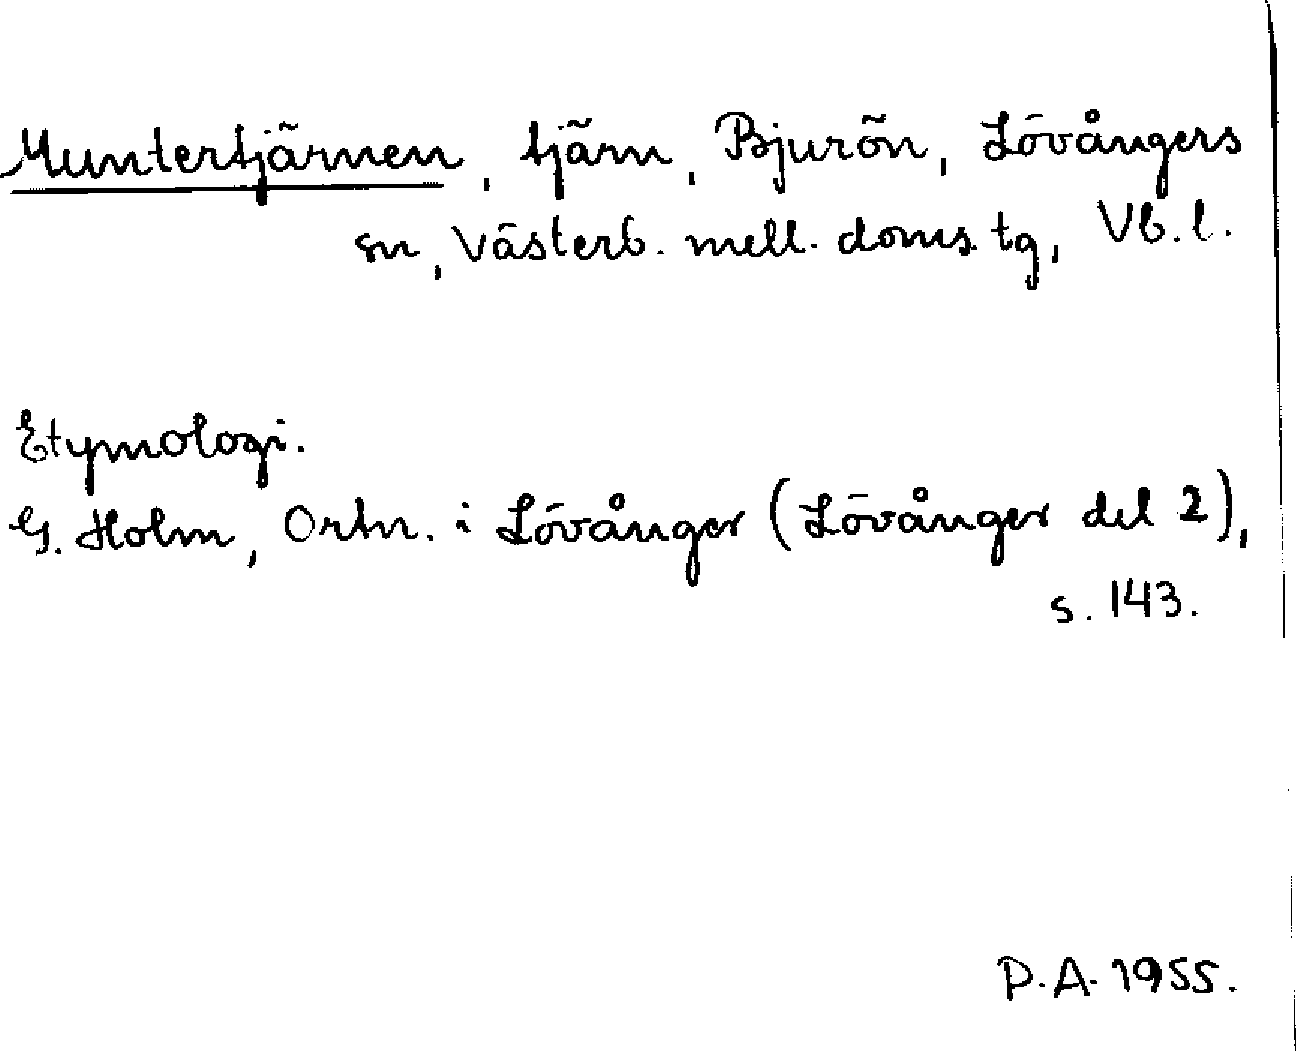 Muntertjärnen, tjärn, Bjurön, Lövångers
sn, Västerb. mell. doms. tg, Vb. l.
Etymologi.
G. Holm, Ortn. i Lövånger (Lövånger del 2),
s. 143.
P.A. 1955.